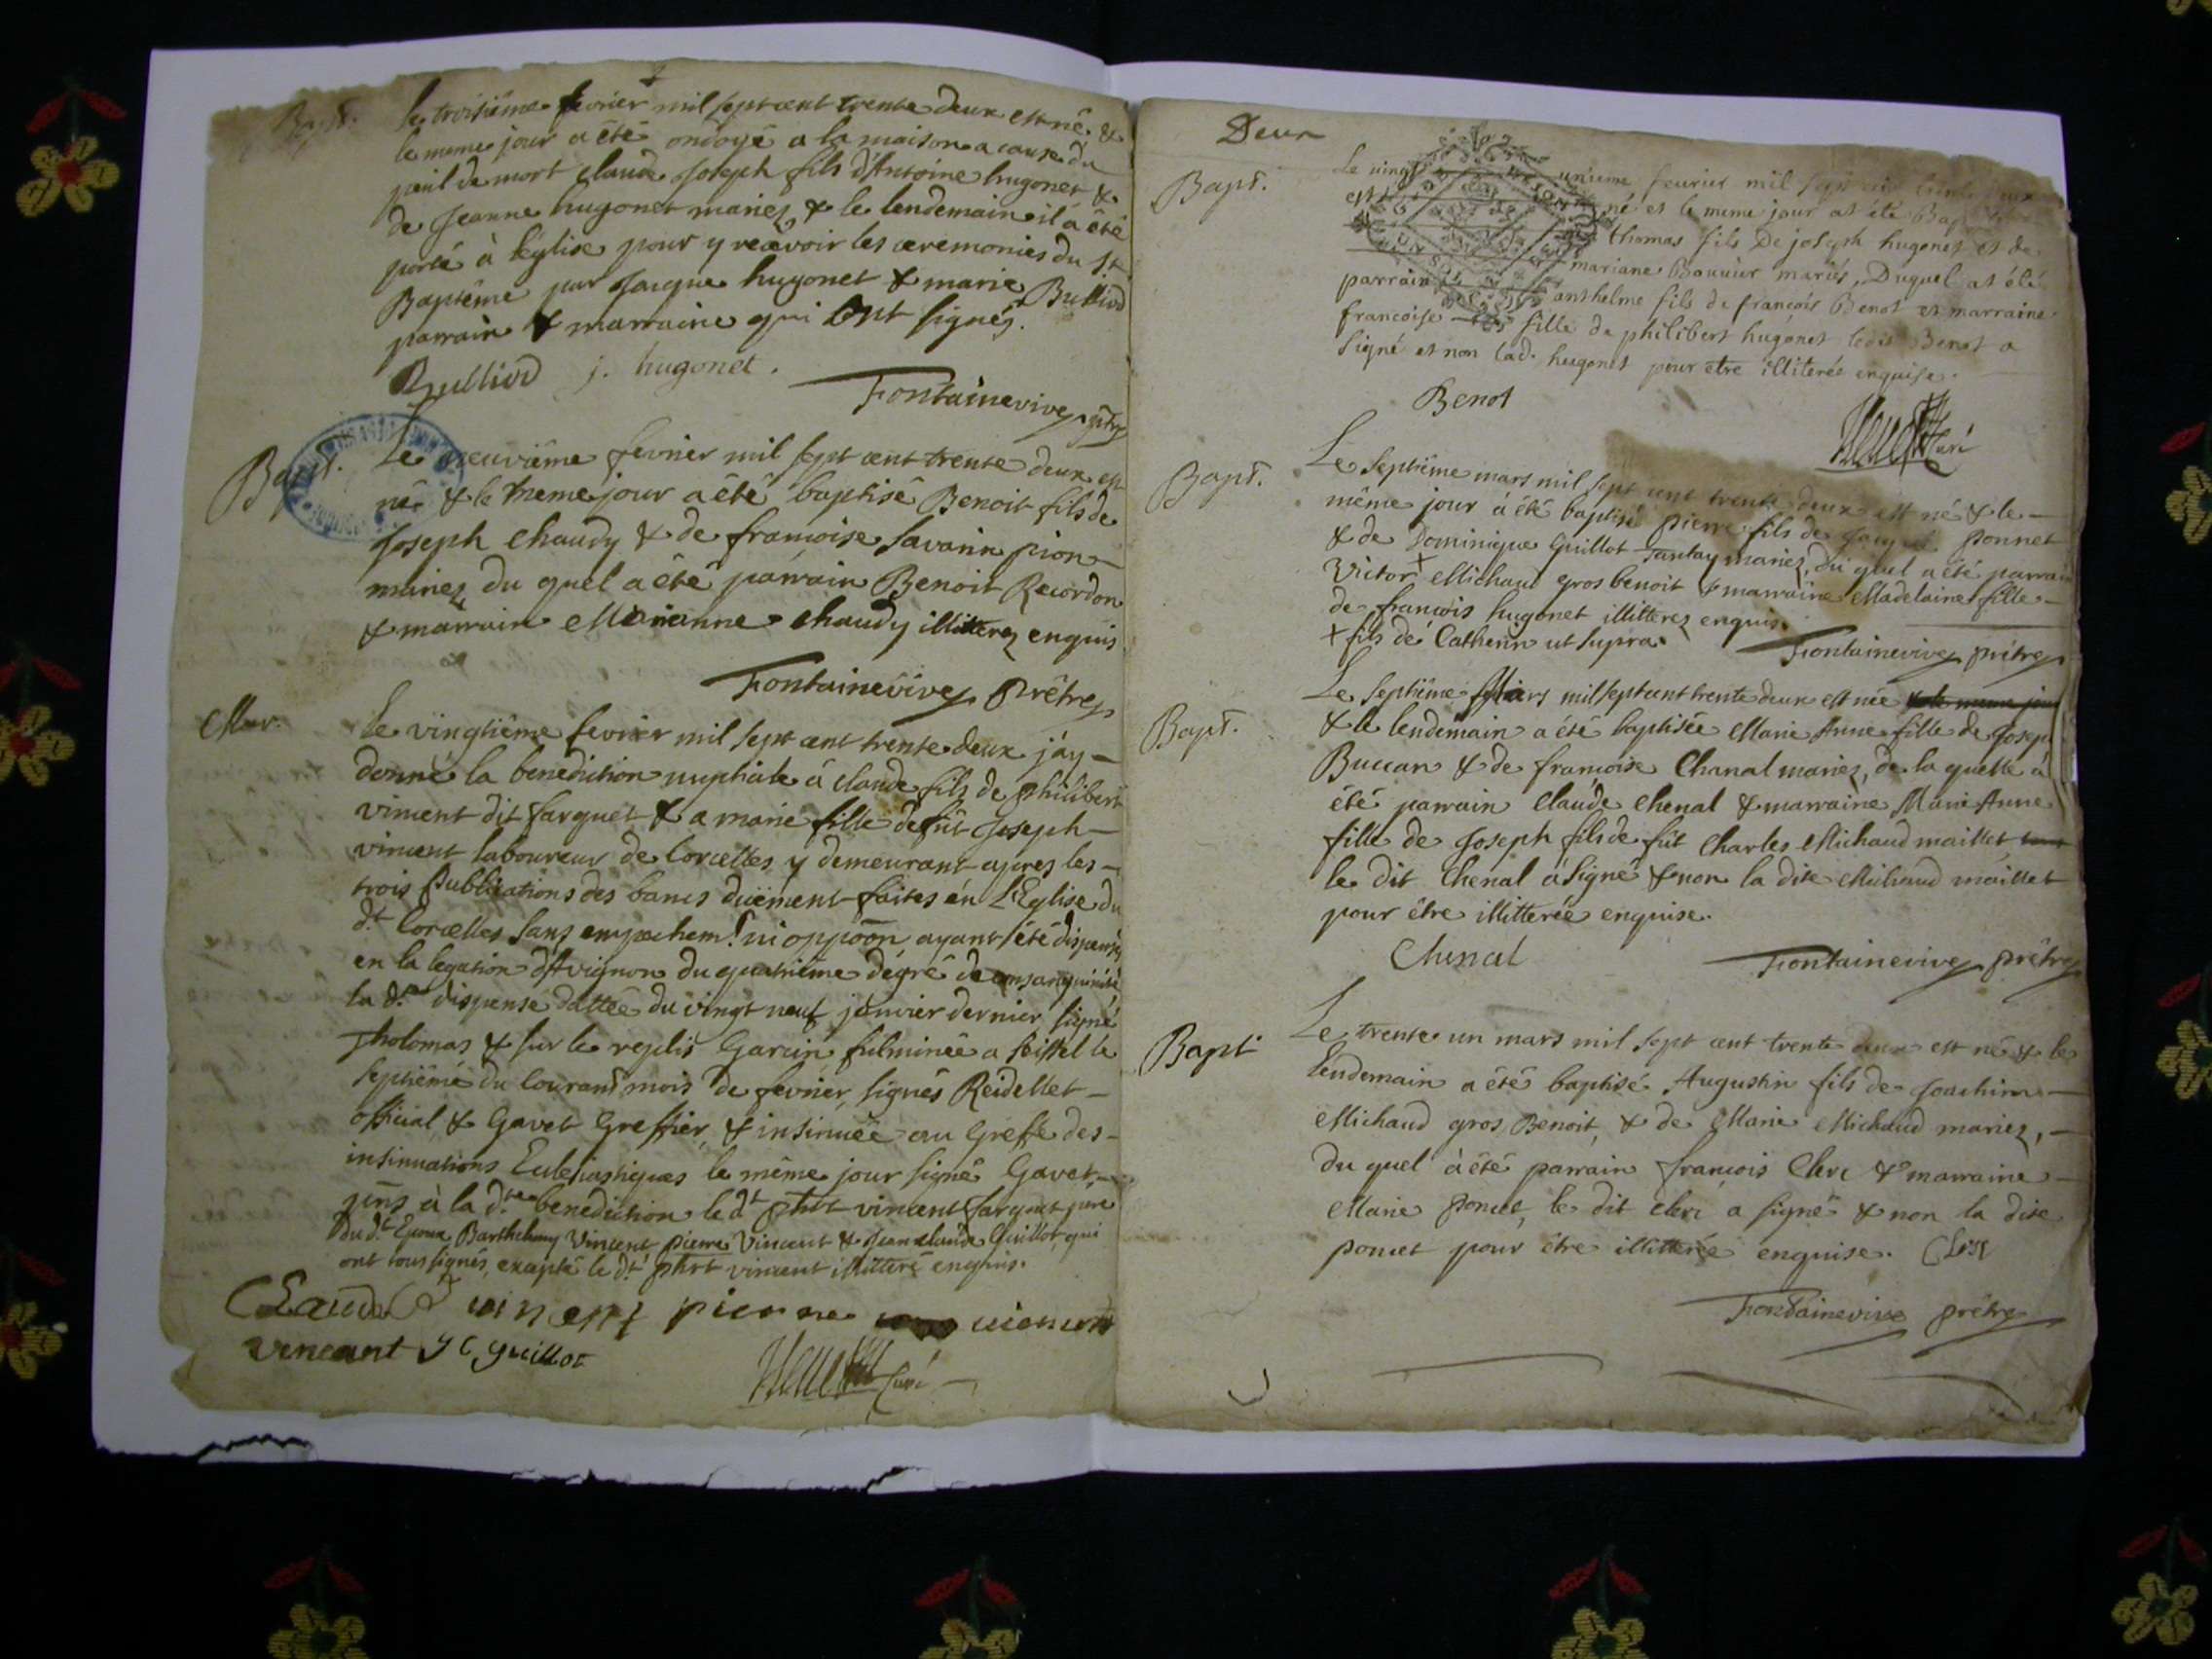 Bapt.
le troisiême fevrier mil sept cent trente deux est né &
le meme jour a êtê ondoyê a la maison a cause du
peril de mort Claude Joseph fils d'Antoine hugonet &
de Jeanne hugonet mariez, & le lendemain il a êtê
porté à l'église pour y recevoir les ceremonies du St.
Baptême par Jacque hugonet & marie Bulliod
parrain & marraine qui ont signés.
Bulliod j. hugonet.
Fontainevive ptre
Bapt.
Le neuviême fevrier mil sept cent trente deux est
né & le meme jour a êtê baptisê Benoit fils de
Joseph Chaudy & de francoise Savarin pion
mariez du quel a êtê parrain Benoit Recordon
& marraine Marianne Chaudy illitterez enquis
Fontainevive Prêtre
Mar.
Le vingtiême fevrier mil sept cent trente deux j'ay
donné la benediction nuptiale à Claude fils de philibert
vincent dit farguet & a marie fille de fût Joseph
vincent laboureur de Corcelles y demeurant apres les
trois Publications des bancs duëment faites en L'Eglise du
dt Corcelles sans empechemt. ni oppoõn, ayant êté dispensés
en la legation d'Avignon du quatriême dégré de consanguinité
la dte dispense dattée du vingt neuf janvier dernier, signé
Tholomas & sur le replis Garcin, fulminée a seissel le
septiême du Courant mois de fevrier, signés Reidellet
official & Gavet Greffier, & insinuée au Grefe des
insinuations Ecclesiastiques le même jour signé Gavet,
pñs à la dte benediction le dt phbt vincent farguet pere
du dt Epoux, Barthelemy Vincent, pierre Vincent & Jean claude Guillot, qui
ont tous signés, excepté le dt phbt vincent illitteré enquis.
Claude vincent pierre vincent
vincent J C guillot
curé
Deux
Bapt.
Le vingt unieme feurier mil sept cent trente deux
est né et le meme jour at été Baptisé
thomas fils De joseph hugonet et de
mariane Bouvier mariés, Duquel at été
parrain anthelme fils de francois Benot et marraine
francoise fille de philibert hugonet ledit Benot a
signé et non lad. hugonet pour etre illiterée enquise.
Benot
curé
Bapt.
Le septiême mars mil sept cent trente deux est né & le
même jour à été baptisé pierre fils de Jacque ponnet
& de Dominique Guillot Tantay mariez, du quel a été parrain
Victor + Michaud gros benoit & marraine Madelaine fille
de francois hugonet illitterez enquis.
+ fils de Catherin ut supra.
Fontainevive prêtre
Bapt.
Le septiême Mars mil sept cent trente deux est née & le meme jour
& le lendemain a été baptisée Marie Anne fille de Josep
Buccan & de francoise Chenal mariez, de la quelle à
êté parrain Claude Chenal & marraine Marie Anne
fille de Joseph fils de fût Charles Michaud maillet
le dit Chenal à signé & non la dite Michaud maillet
pour être illitterée enquise.
Chenal
Fontainevive prêtre
Bapt
Le trente un mars mil sept cent trente deux est né & le
lendemain a été baptisé Augustin fils de Joachim
Michaud gros Benoit, & de Marie Michaud mariez,
du quel à été parrain francois Clerc & marraine
Marie poncet, le dit clerc a signé & non la dite
poncet pour être illitterée enquise. Clerc
Fontainevive prêtre